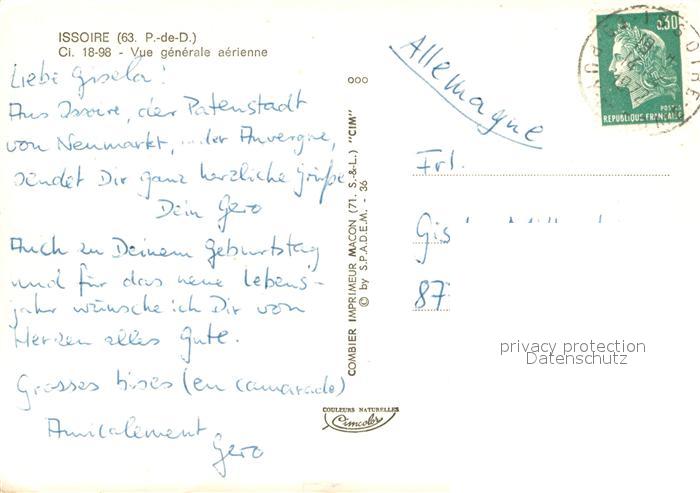 ISSOIRE (63. P.-de-D.)
Ci. 18-98 - Vue générale aérienne
Liebe Gisela!
Aus Issoire, der Patenstadt
von Neumarkt, ...der Auvergne,
sendet Dir ganz herzliche Grüße
Dein Gero
Auch zu Deinem Geburtstag
und für das neue Lebens-
jahr wünsche ich Dir von
Herzen alles Gute.
Grosses bises (en camarade)
Amicalement
Gero
ooo
COMBIER IMPRIMEUR MACON (71. S.-&-L.) "CIM"
© by S.P.A.D.E.M. - 36
COULEURS NATURELLES
Cimcolor
Allemagne
0,30
POSTES
REPUBLIQUE FRANÇAISE
Frl.
Gis
87
privacy protection
Datenschutz